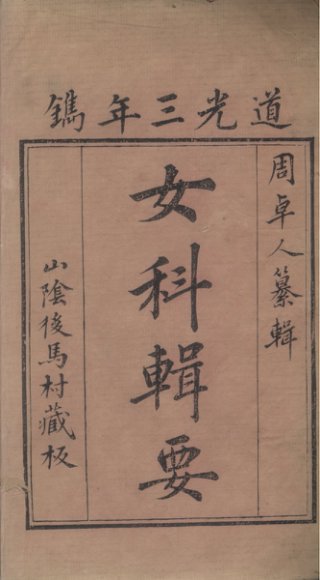 道光三年鐫
周卓人纂輯
女科輯要
山陰後馬村藏板